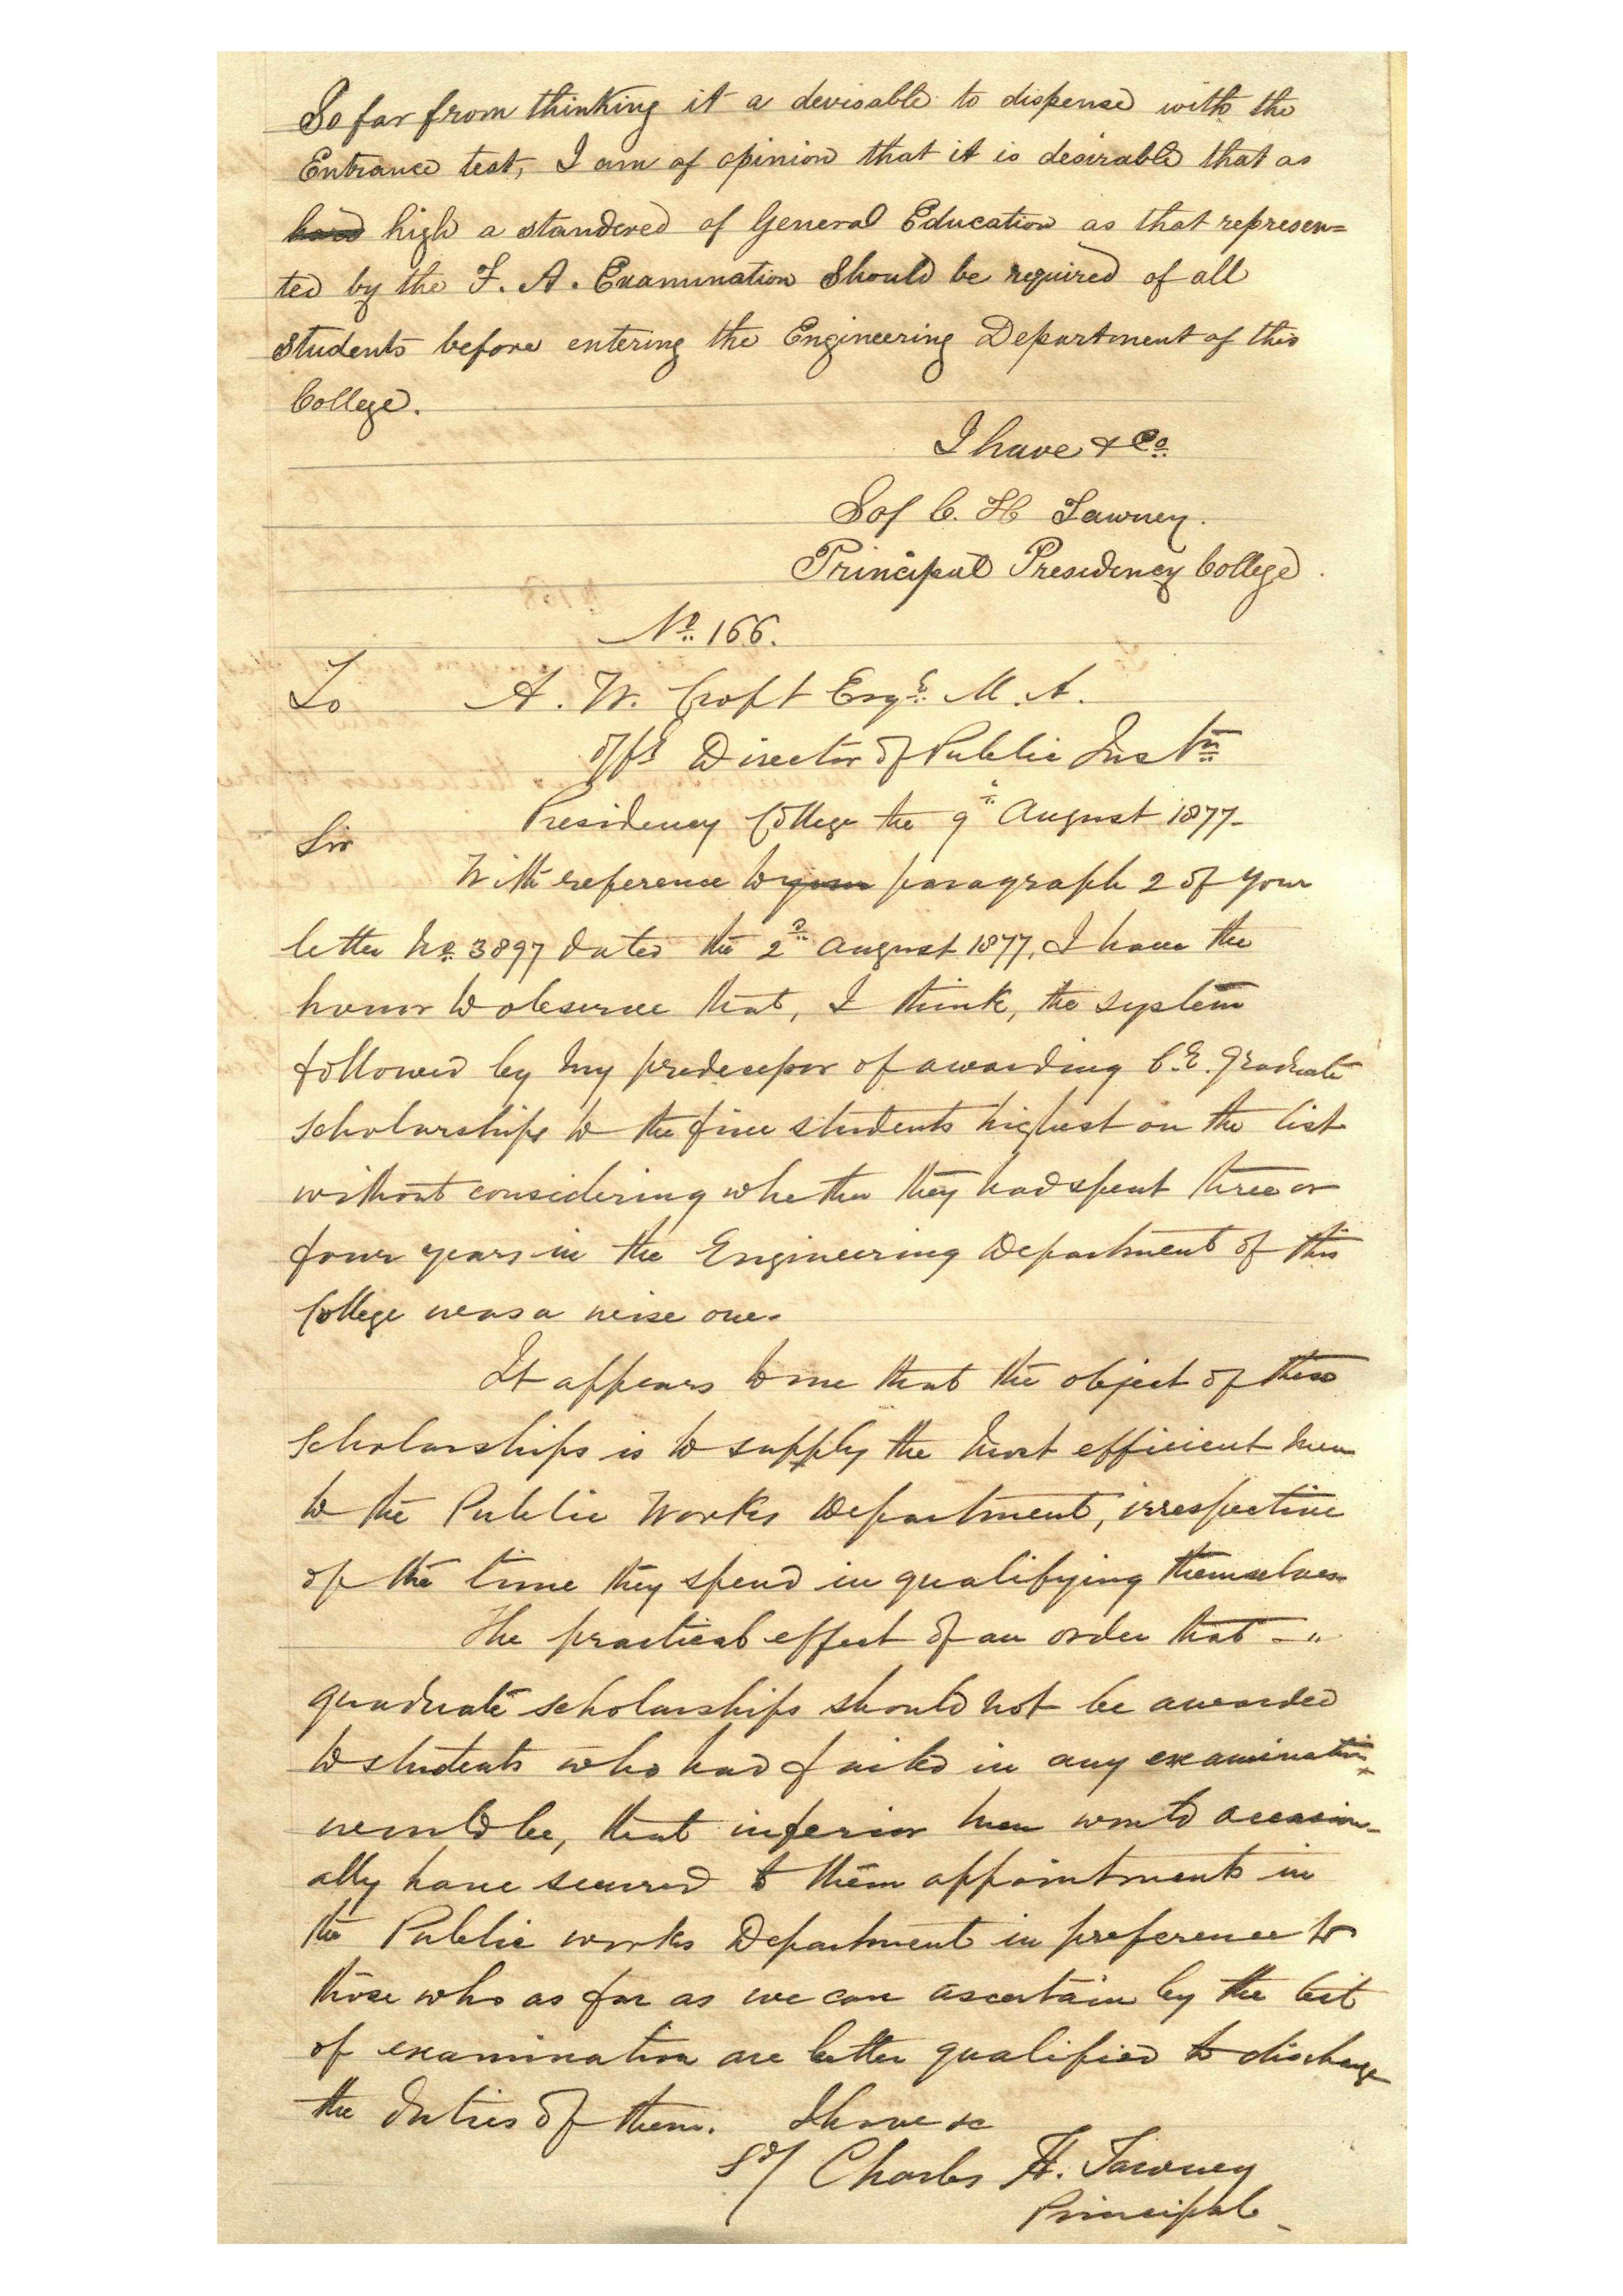 So far from thinking it a devisable to dispense with the
Entrance test, I am of opinion that it is desirable that as
high a standered of General Education as that represen=
ted by the F. A. Examination Should be required of all
students before entering the Engineering Department of this
College.
I have & Co.
Sd/ C. H Tawney.
Principal Presidency College.
No. 166.
To A. W. Croft Esqr. M. A.
Offg Director of Public Instn
Presidency College the 9th August 1877-
Sir
With reference to your paragraph 2 of your
letter No. 3897 dated the 2nd August 1877, I have the
honor to observe that, I think, the system
followed by my predecessor of awarding C.E. graduate
scholarships to the five students highest on the list
without considering whether they had spent three or
four years in the Engineering Department of this
College was a wise one.
It appears to me that the object of these
scholarships is to supply the most efficient men
to the Public Works Department, irrespective
of the time they spend in qualifying themselves
The practical effect of an order that - "
graduate scholarships should not be awarded
to students who had failed in any examination
would be, that inferior men would occasion-
ally have secured to them appointments in
the Public works Department in preference to
those who as far as we can ascertain by the test
of examination are better qualified to discharge
the duties of them. I have &c
Sd/ Charles H. Tawney
Principal -